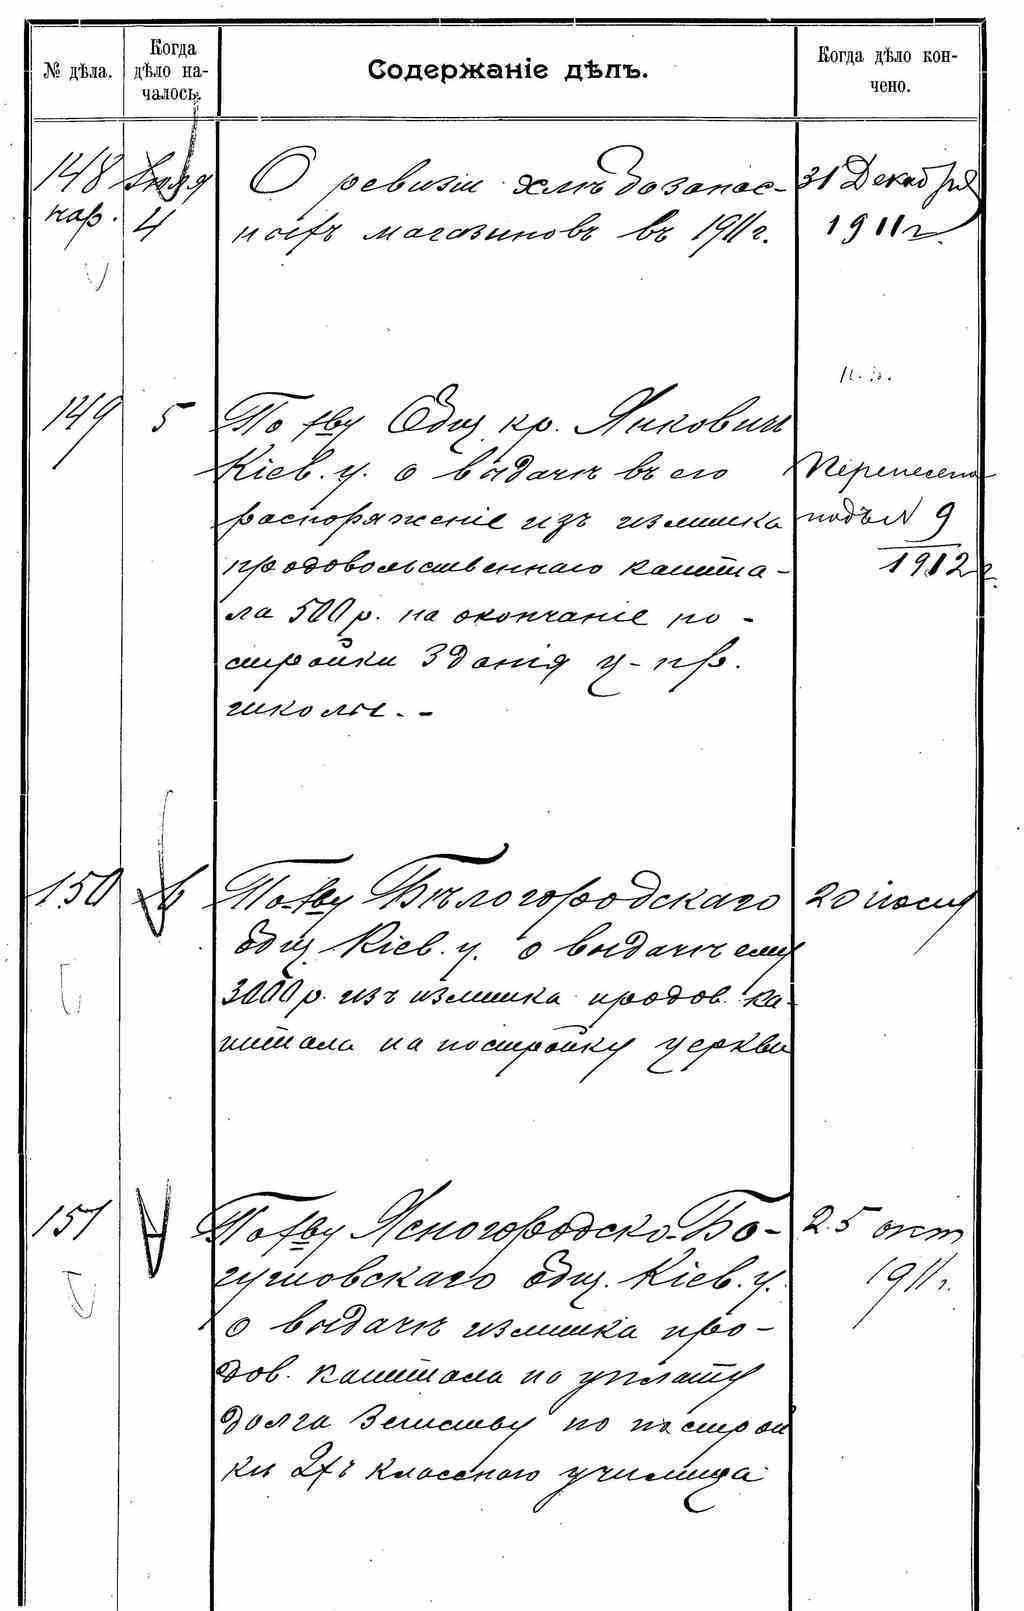 № дѣла.
Когда
дѣло на-
чалось.
Содержаніе дѣлъ.
Когда дѣло кон-
чено.
148
нар.
Іюля
4
О ревизіи хлѣбозапас-
ныхъ магазиновъ въ 1911 г.
31 Декабря
1911 г.
149
5
По хву Общ. кр. Янкович
Кіев. у. о выдачѣ въ его
распоряженіе изъ излишка
продовольственнаго капита-
ла 500 р. на окончаніе по-
стройки зданія ц-пр.
школы. -
Перенесено
подъ N 9
1912 г.
150
6
По хву Бѣлогородскаго
общ. Кіев. у. о выдачѣ ему
3000 р. изъ излишка продов. ка-
питала на постройку церкви
20 іюня
151
По хву Ясногородско-Бо-
гушовскаго общ. Кіев. у.
о выдачѣ излишка про-
дов. капитала на уплату
долга Земству по построй
ки 2хъ класснаго училища
25 окт
1911 г.